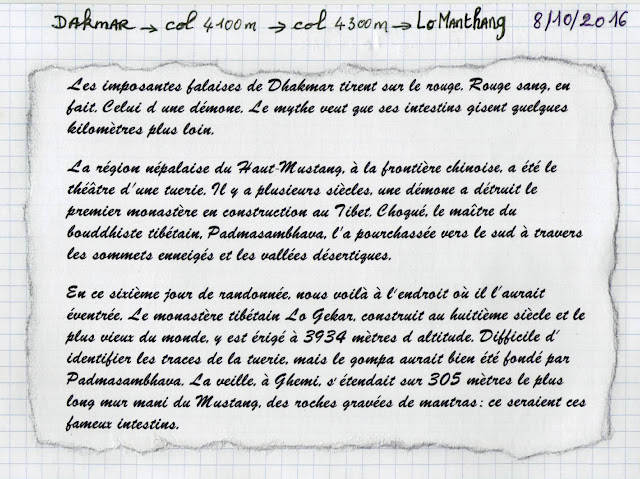 DAKMAR → col 4100m → col 4300m → Lo Manthang 8/10/2016
Les imposantes falaises de Dhakmar tirent sur le rouge. Rouge sang, en
fait. Celui d une démone. Le mythe veut que ses intestins gisent quelques
kilomètres plus loin.
La région népalaise du Haut-Mustang, à la frontière chinoise, a été le
théâtre d'une tuerie. Il y a plusieurs siècles, une démone a détruit le
premier monastère en construction au Tibet. Choqué, le maître du
bouddhiste tibétain, Padmasambhava, l'a pourchassée vers le sud à travers
les sommets enneigés et les vallées désertiques.
En ce sixième jour de randonnée, nous voilà à l'endroit où il l'aurait
éventrée. Le monastère tibétain Lo Gekar, construit au huitième siècle et le
plus vieux du monde, y est érigé à 3934 mètres d altitude. Difficile d'
identifier les traces de la tuerie, mais le gompa aurait bien été fondé par
Padmasambhava. La veille, à Ghemi, s'étendait sur 305 mètres le plus
long mur mani du Mustang, des roches gravées de mantras : ce seraient ces
fameux intestins.